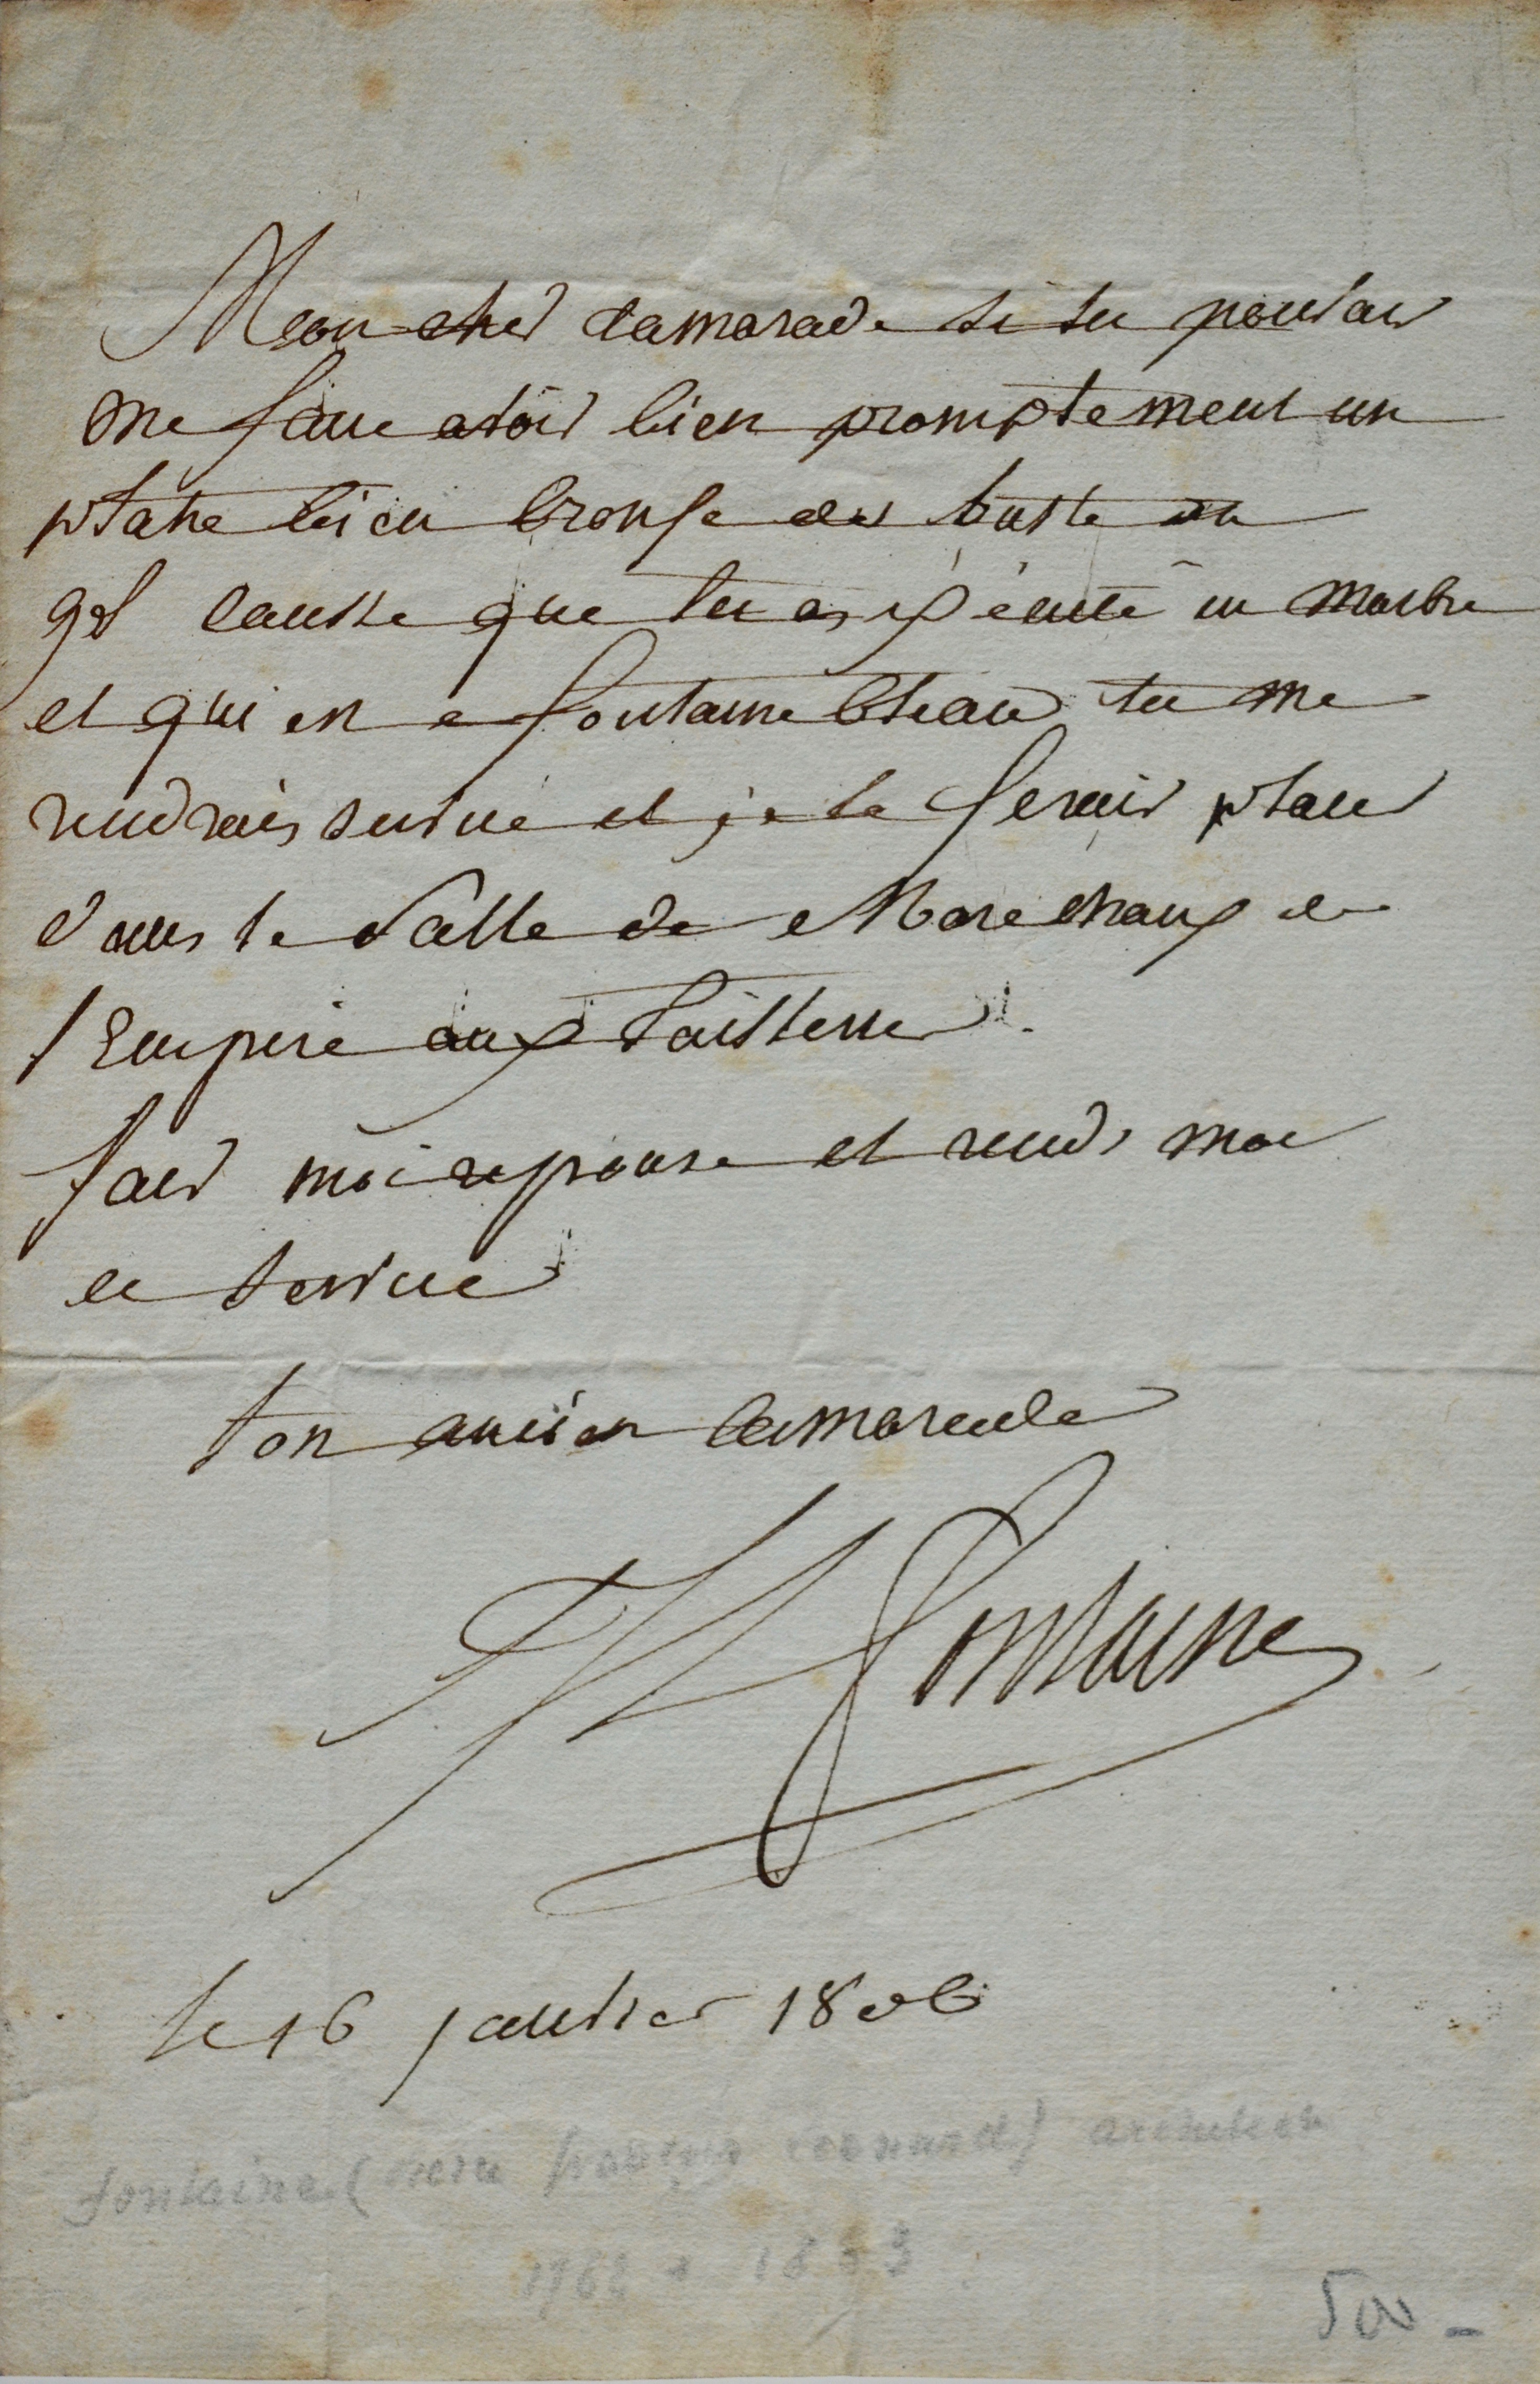 Mon cher Camarade si tu pouvais
me faire avoir bien promptement un
platre bien bronse du buste du
gal causse que tu as éxécuté en marbre
et qui en a fontainebleau tu me
rendrais service et je le ferais placer
dans la salle de Marechaux de
l'Empire aux Tuilleries.
fais moi reponse et rends moi
ce service
ton ancien camarade
Fontaine
le 16 janvier 1806
fontaine (Pierre françois Leonard) architecte
1762 a 1853
500 -